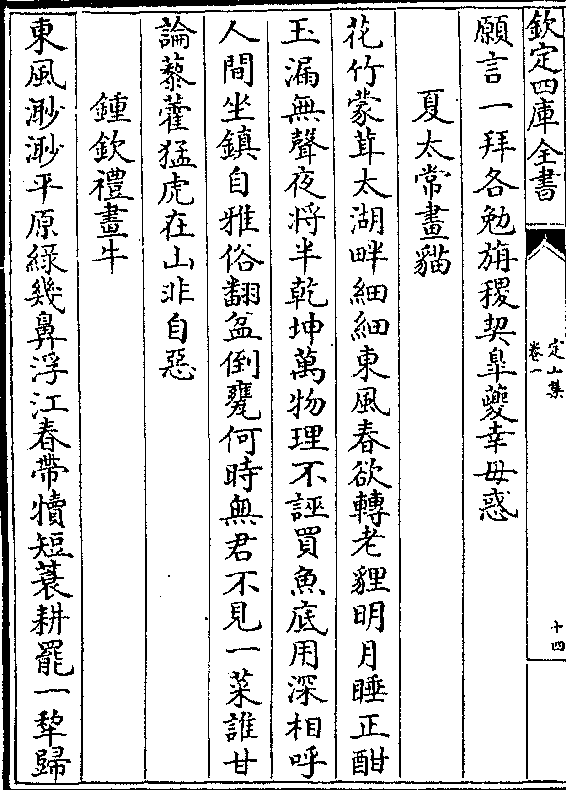 欽定四庫全書
定山集
卷一
十四
願言一拜各勉旃稷契臯夔幸毋惑
夏太常畫貓
花竹蒙茸太湖畔細細東風春欲轉老貍明月睡正酣
玉漏無聲夜將半乾坤萬物理不誣買魚底用深相呼
人間坐鎮自雅俗翻盆倒甕何時無君不見一菜誰甘
論藜藿猛虎在山非自惡
鍾欽禮畫牛
東風渺渺平原綠幾鼻浮江春帶犢短蓑耕罷一犂歸